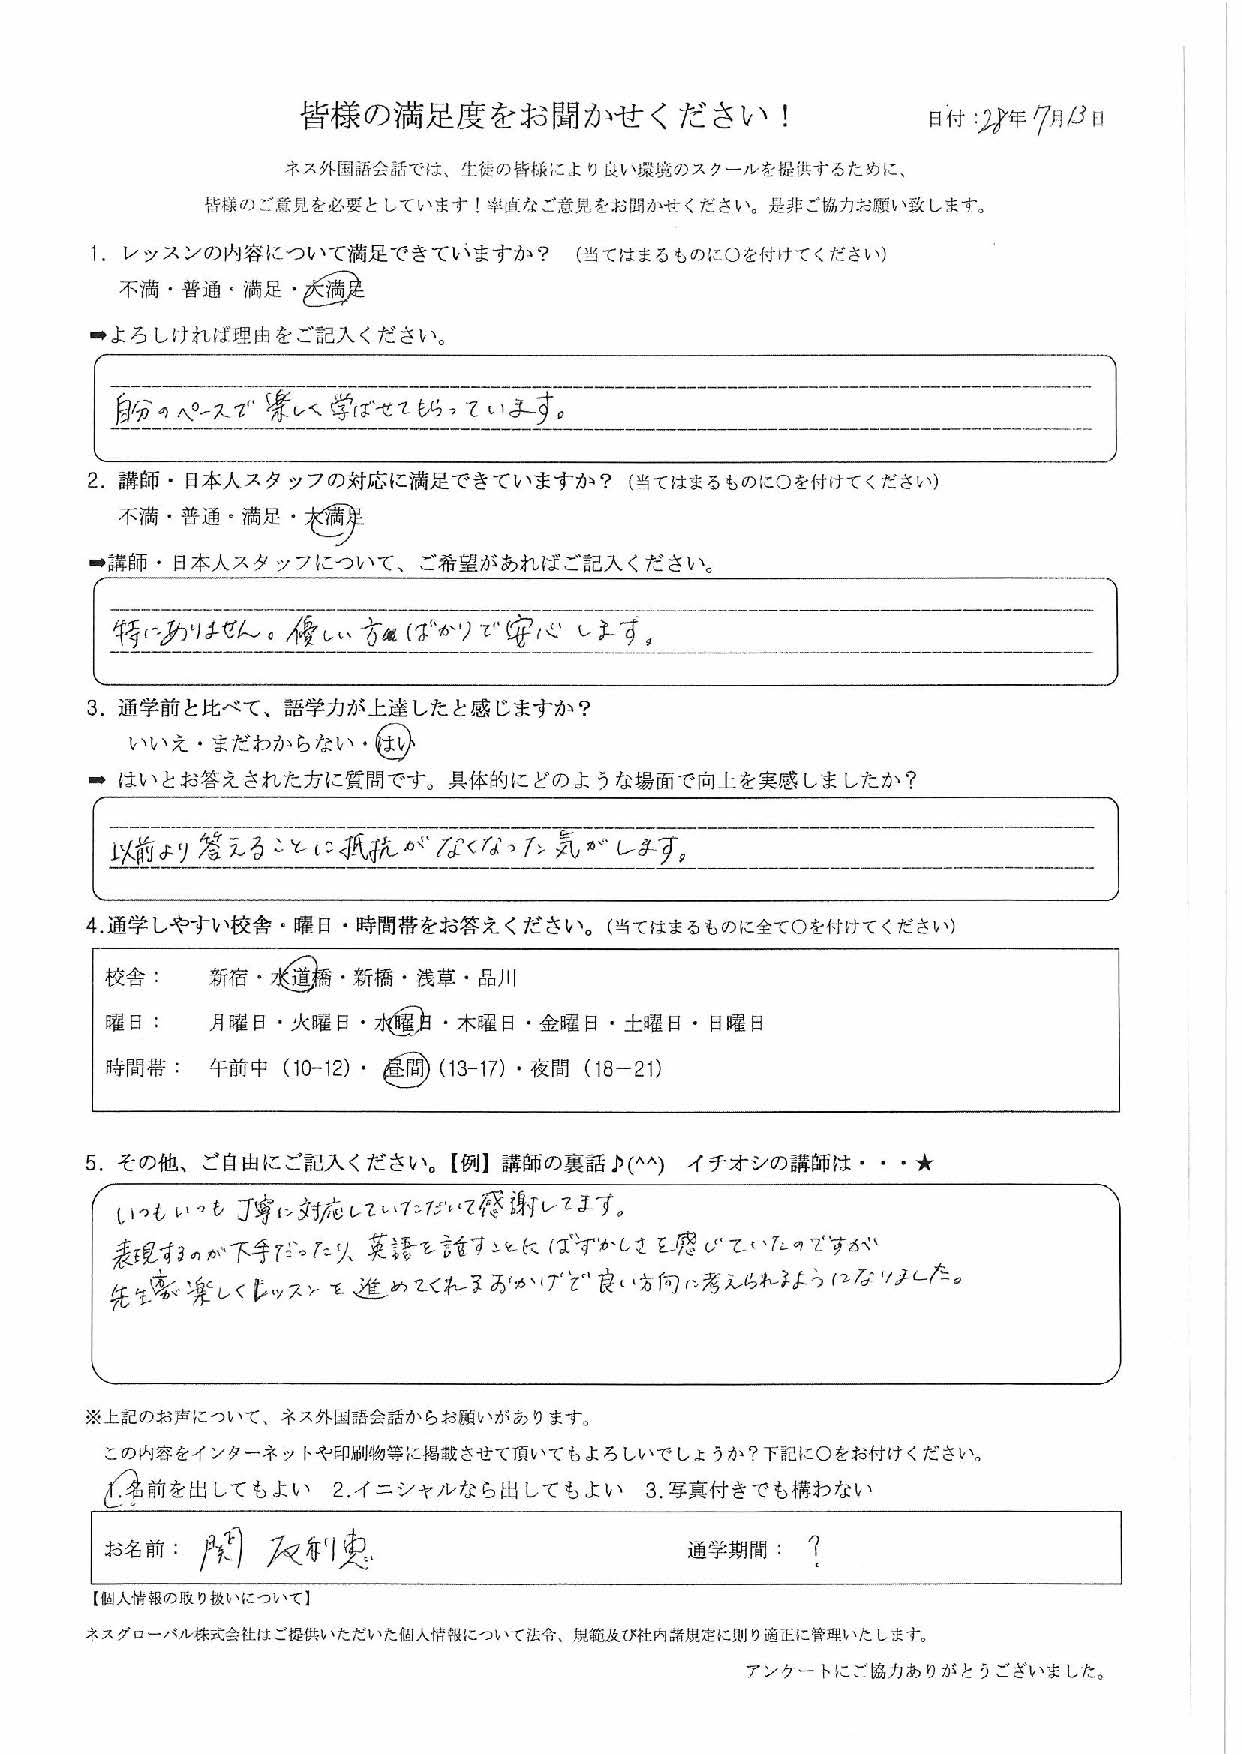 皆様の満足度をお聞かせください！
日付：28年7月13日
ネス外国語会話では、生徒の皆様により良い環境のスクールを提供するために、
皆様のご意見を必要としています！率直なご意見をお聞かせください。是非ご協力お願い致します。
1. レッスンの内容について満足できていますか？（当てはまるものに〇を付けてください）
不満・普通・満足・大満足
➡よろしければ理由をご記入ください。
自分のペースで楽しく学ばせてもらっています。
2. 講師・日本人スタッフの対応に満足できていますか？（当てはまるものに〇を付けてください）
不満・普通・満足・大満足
➡講師・日本人スタッフについて、ご希望があればご記入ください。
特にありません。優しい方ばかりで安心します。
3. 通学前と比べて、語学力が上達したと感じますか？
いいえ・まだわからない・はい
➡ はいとお答えされた方に質問です。具体的にどのような場面で向上を実感しましたか？
以前より答えることに抵抗がなくなった気がします。
4.通学しやすい校舎・曜日・時間帯をお答えください。（当てはまるものに全て〇を付けてください）
校舎： 新宿・水道橋・新橋・浅草・品川
曜日： 月曜日・火曜日・水曜日・木曜日・金曜日・土曜日・日曜日
時間帯： 午前中（10-12）・昼間（13-17）・夜間（18－21）
5. その他、ご自由にご記入ください。【例】講師の裏話♪(^^) イチオシの講師は・・・★
いつもいつも丁寧に対応していただいて感謝してます。
表現するのが下手だったり、英語を話すことにはずかしさを感じていたのですが
先生が楽しくレッスンを進めてくれるおかげで良い方向に考えられるようになりました。
※上記のお声について、ネス外国語会話からお願いがあります。
この内容をインターネットや印刷物等に掲載させて頂いてもよろしいでしょうか？下記に〇をお付けください。
1.名前を出してもよい 2.イニシャルなら出してもよい 3.写真付きでも構わない
お名前： 関 友利恵 通学期間： ？
【個人情報の取り扱いについて】
ネスグローバル株式会社はご提供いただいた個人情報について法令、規範及び社内諸規定に則り適正に管理いたします。
アンケートにご協力ありがとうございました。